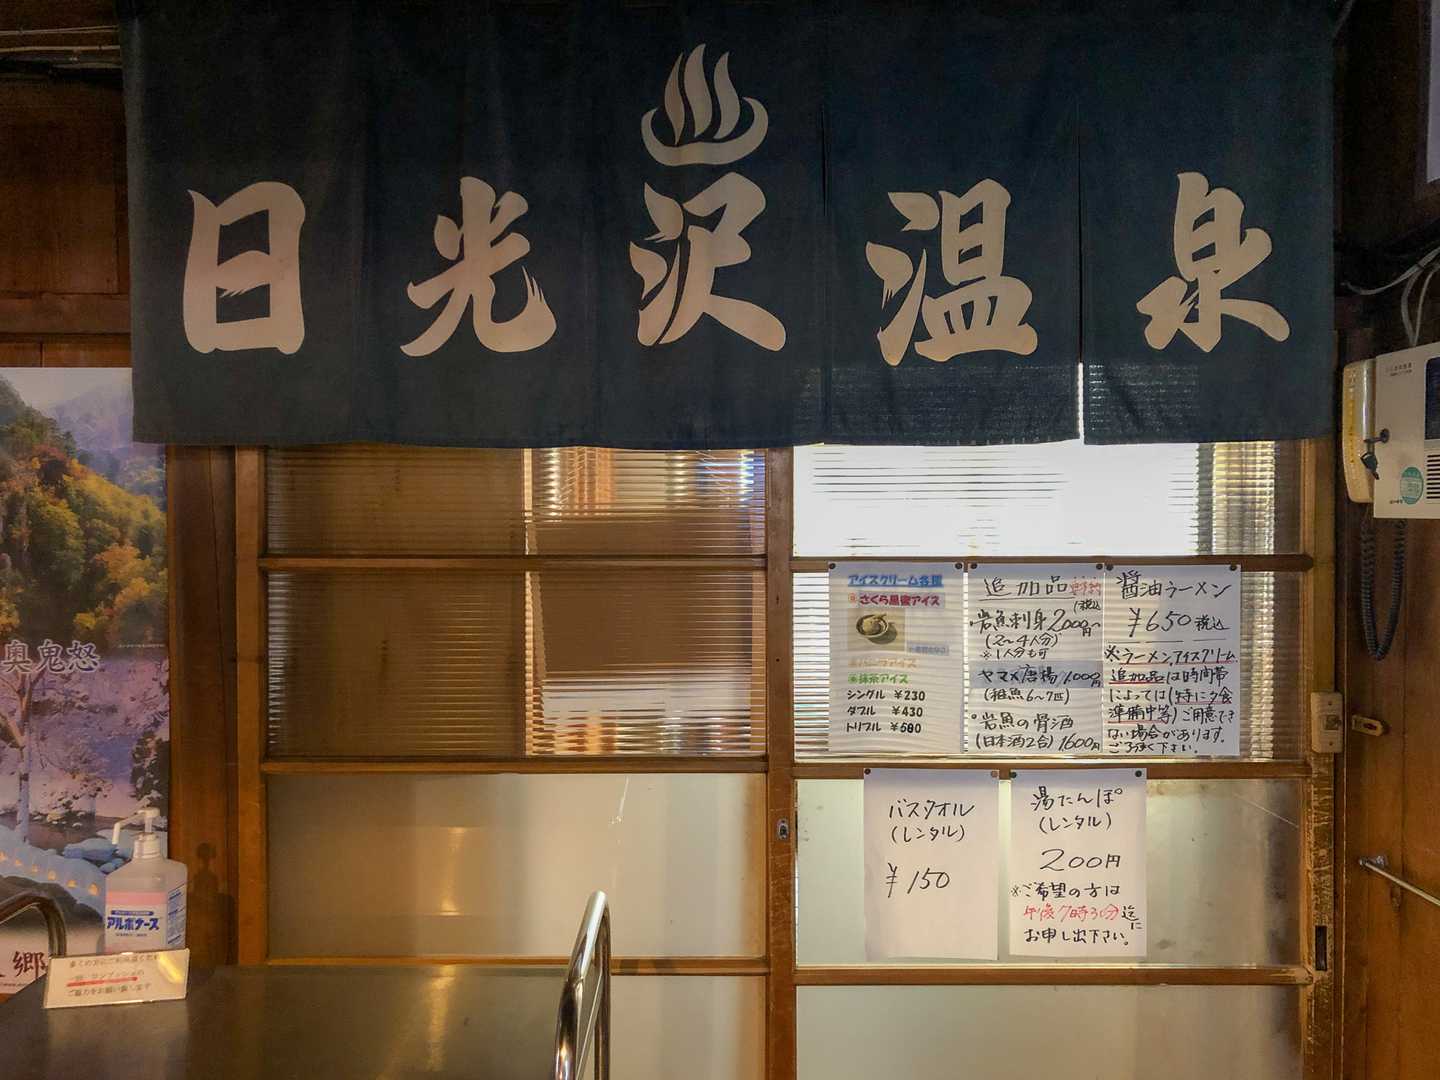 日光沢温泉
奥鬼怒
アイスクリーム各種
さくら黒蜜アイス
バニラアイス
抹茶アイス
シングル ￥230
ダブル ￥430
トリプル ￥580
追加品
(税込)
岩魚刺身 2000円〜
(2〜4人分)
※1人分も可
ヤマメ唐揚 1000円
(稚魚6〜7匹)
岩魚の骨酒
(日本酒2合) 1600円
醤油ラーメン
￥650 税込
※ラーメン、アイスクリーム
追加品は時間帯
によっては(特に夕食
準備中等)ご用意でき
ない場合があります。
ご了承下さい。
バスタオル
(レンタル)
￥150
湯たんぽ
(レンタル)
200円
※ご希望の方は
午後7時30分迄に
お申し出下さい。
アルボナース
郷
多くの方にご利用頂くため
一回 ワンプッシュの
ご協力をお願い致します